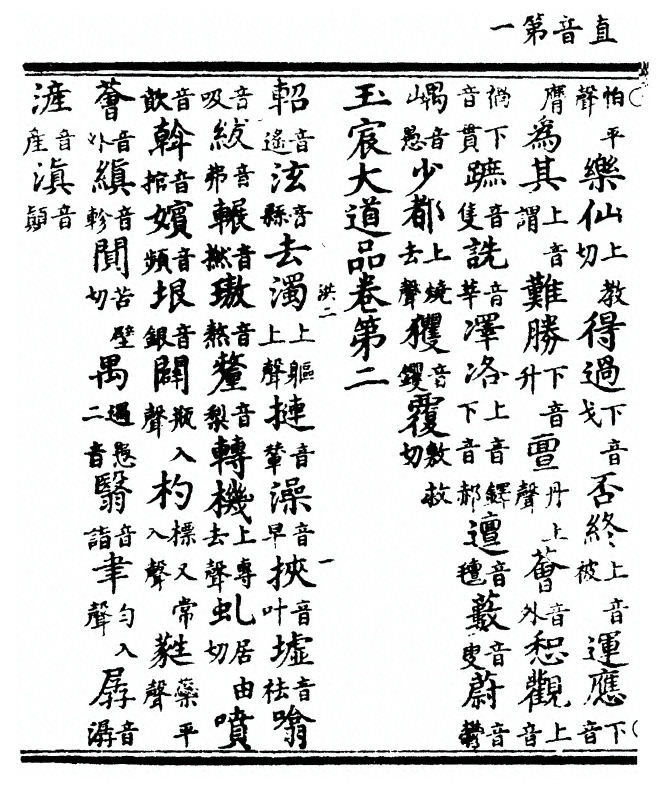 直音第一
怕平聲樂仙上教切得過下音戈否終上音被運應下音
膺為其上音謂難勝下音升亶丹上聲薈音外恕觀上音
緺下音貫蹠音隻詵音莘澤洛上音鐸下音郝邅音氊藪音叟蔚音欝
嵎音愚少都上燒去聲玃音钁覆敷救切
玉宸大道品卷第二
洪二 一
軺音遙泫音縣去濁上軀上聲摙音輦澡音早挾音叶墟音祛噏
音吸紱音弗輾音撚璈音熬釐音梨轉機上專去聲虬居由切噴
音斡音捾嬪音頻垠音銀闢瓶入聲杓標又常入聲蕤蘂平聲
薈音外縝音軫闃苦壁切禺遇愚二音翳音詣聿勻入聲孱音潺
滻音產滇音顛